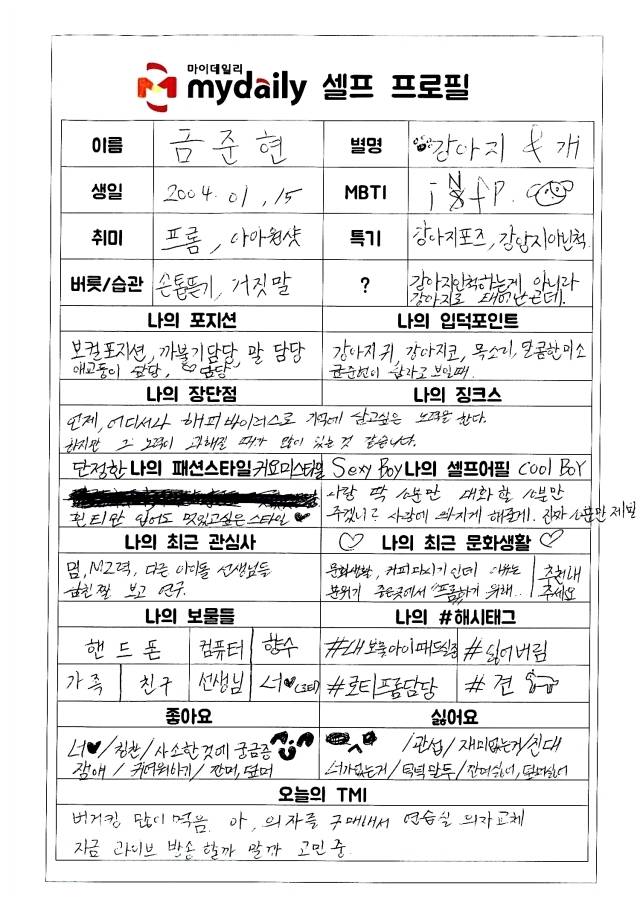 마이데일리
mydaily 셀프 프로필
이름 금준현 별명 강아지 & 개
생일 2004.01.15 MBTI iNfP.
취미 프롬, 아아원샷 특기 강아지포즈, 강압지아닌척
버릇/습관 손톱뜯기, 거짓말 ? 강아지인척하는게 아니라
강아지로 태어난건데.
나의 포지션 나의 입덕포인트
보컬포지션, 까불기담당, 말 담당 강아지 귀, 강아지코, 목소리, 달콤한미소
애교둥이 담당, ♡ 담당 금준현이 남자로 보일때.
나의 장단점 나의 징크스
언제, 어디서나 해피바이러스로 기억에 남고싶은 노력을 한다.
하지만 그 노력이 과해질 때가 많이 있는 것 같습니다.
단정한 나의 패션스타일 커요미스타일 Sexy Boy 나의 셀프어필 Cool Boy
사람 딱 1분만 대화할 1분만
흰티만 입어도 멋있고싶은스타일 ♥ 주겠니? 사랑에 빠지게 해줄게. 진짜 1분만 제발
나의 최근 관심사 ♡ 나의 최근 문화생활 ♡
밈, MZ력, 다른 아이돌 선생님들 문화생활, 커피마시기인데 이유는
챌린지 보고 연구. 분위기 좋은곳에서 "프롬"하기 위해.. 추천해
주세요
나의 보물들 나의 #해시태그
핸드폰 컴퓨터 향수 #내보물아이패드실종 #잃어버림
가족 친구 선생님 너♥(로티) #로티프롬담당 #견
좋아요 싫어요
너♥/칭찬/사소한것에 궁금증 /관섭/재미없는거/진대
잠애/귀여워하기/잔머, 덮머 너가없는거/턱턱말투/잔머싫어, 덮머싫어
오늘의 TMI
버거킹 많이 먹음. 아, 의자를 구매해서 연습실 의자교체
지금 라이브 방송 할까 말까 고민 중.